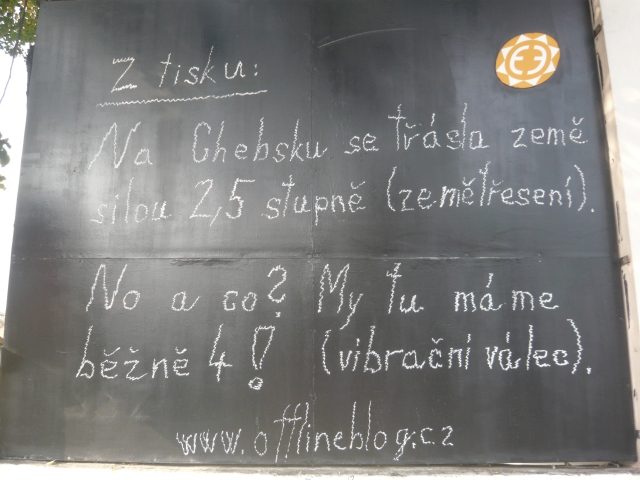 Z tisku:
Na Chebsku se třásla země
silou 2,5 stupně (zemětřesení).
No a co? My tu máme
běžně 4! (vibrační válec).
www.offlineblog.cz